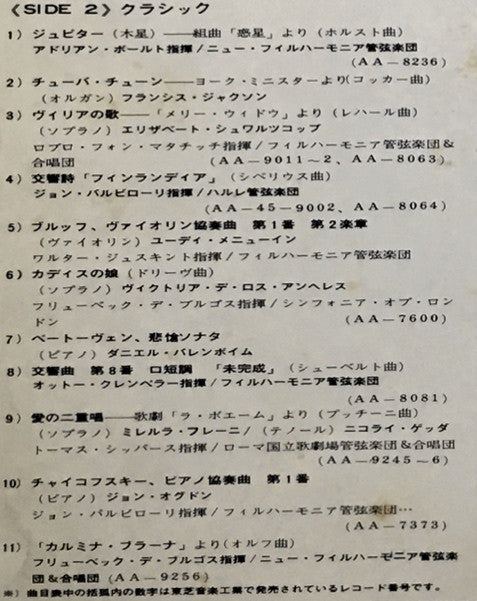 《SIDE 2》クラシック
1) ジュピター(木星)――組曲「惑星」より(ホルスト曲)
アドリアン・ボールト指揮/ニュー・フィルハーモニア管弦楽団
(AA-8236)
2) チューバ・チューン――ヨーク・ミニスターより(コッカー曲)
(オルガン)フランシス・ジャクソン
3) ヴイリアの歌――「メリー・ウィドウ」より(レハール曲)
(ソプラノ)エリザベート・シュワルツコップ
ロブロ・フォン・マタチッチ指揮/フィルハーモニア管弦楽団&
合唱団 (AA-9011~2、AA-8063)
4) 交響詩「フィンランディア」(シベリウス曲)
ジョン・バルビローリ指揮/ハルレ管弦楽団
(AA-45-9002、AA-8064)
5) ブルッフ、ヴァイオリン協奏曲 第1番 第2楽章
(ヴァイオリン)ユーディ・メニューイン
ワルター・ジュスキント指揮/フィルハーモニア管弦楽団
6) カディスの娘(ドリーヴ曲)
(ソプラノ)ヴィクトリア・デ・ロス・アンヘレス
フリューベック・デ・ブルゴス指揮/シンフォニア・オブ・ロン
ドン (AA-7600)
7) ベートーヴェン、悲愴ソナタ
(ピアノ)ダニエル・バレンボイム
8) 交響曲 第8番 ロ短調 「未完成」(シューベルト曲)
オットー・クレンペラー指揮/フィルハーモニア管弦楽団
(AA-8081)
9) 愛の二重唱――歌劇「ラ・ボエーム」より(プッチーニ曲)
(ソプラノ)ミレルラ・フレーニ/(テノール)ニコライ・ゲッダ
トーマス・シッパース指揮/ローマ国立歌劇場管弦楽団&合唱団
(AA-9245~6)
10) チャイコフスキー、ピアノ協奏曲 第1番
(ピアノ)ジョン・オグドン
ジョン・バルビローリ指揮/フィルハーモニア管弦楽団…
(AA-7373)
11) 「カルミナ・ブラーナ」より(オルフ曲)
フリューベック・デ・ブルゴス指揮/ニュー・フィルハーモニア管弦楽
団&合唱団(AA-9256)
※) 曲目表中の括弧内の数字は東芝音楽工業で発売されているレコード番号です。